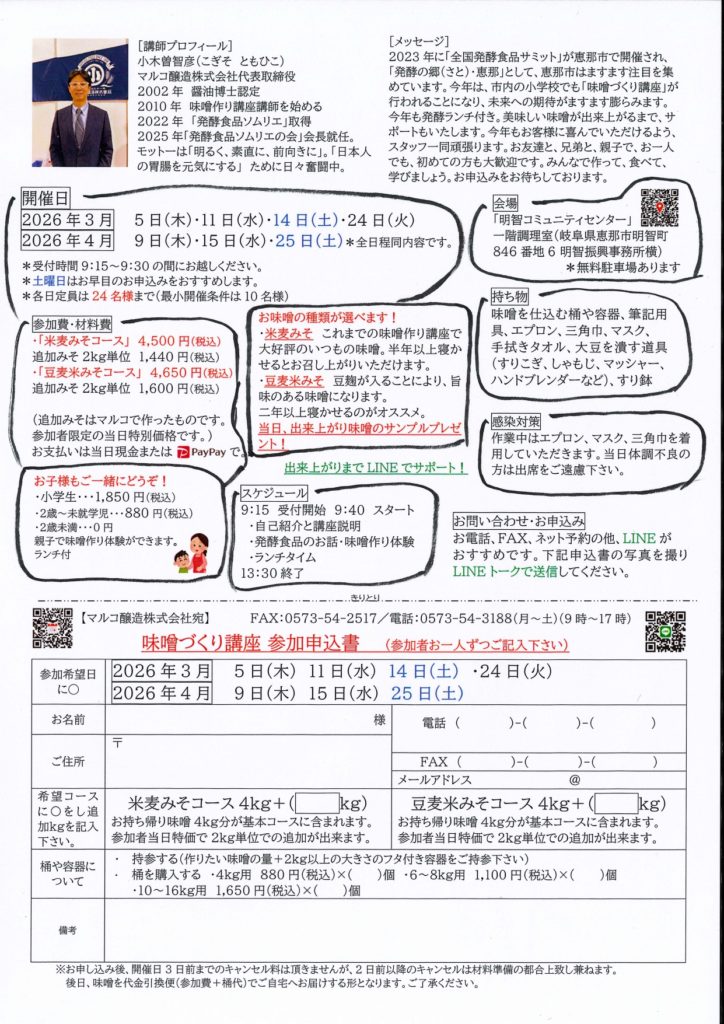 [講師プロフィール]
小木曽智彦(こぎそ ともひこ)
マルコ醸造株式会社代表取締役
2002年 醤油博士認定
2010年 味噌作り講座講師を始める
2022年 「発酵食品ソムリエ」取得
2025年「発酵食品ソムリエの会」会長就任。
モットーは「明るく、素直に、前向きに」。「日本人
の胃腸を元気にする」 ために日々奮闘中。
[メッセージ]
2023年に「全国発酵食品サミット」が恵那市で開催され、
「発酵の郷(さと)・恵那」として、恵那市はますます注目を
集めています。今年は、市内の小学校でも「味噌づくり講座」が
行われることになり、未来への期待がますます膨らみます。
今年も発酵ランチ付き。美味しい味噌が出来上がるまで、サ
ポートもいたします。今年もお客様に喜んでいただけるよう、
スタッフ一同頑張ります。お友達と、兄弟と、親子で、お一人
でも、初めての方も大歓迎です。みんなで作って、食べて、
学びましょう。お申込みをお待ちしております。
開催日
2026年3月 5日(木)・11日(水)・14日(土)・24日(火)
2026年4月 9日(木)・15日(水)・25日(土)*全日程同内容です。
*受付時間9:15~9:30の間にお越しください。
*土曜日はお早目のお申込みをおすすめします。
*各日定員は24名様まで(最小開催条件は10名様)
会場
「明智コミュニティセンター」
一階調理室(岐阜県恵那市明智町
846番地6明智振興事務所横)
*無料駐車場あります
参加費・材料費
・「米麦みそコース」 4,500円(税込)
追加みそ2kg単位 1,440円(税込)
・「豆麦米みそコース」4,650円(税込)
追加みそ2kg単位 1,600円(税込)
(追加みそはマルコで作ったものです。
参加者限定の当日特別価格です。)
お支払いは当日現金または PayPay で。
お味噌の種類が選べます!
・米麦みそ これまでの味噌作り講座で
大好評のいつもの味噌。半年以上寝か
せるとお召し上がりいただけます。
・豆麦米みそ 豆麹が入ることにより、旨
味のある味噌になります。
二年以上寝かせるのがオススメ。
当日、出来上がり味噌のサンプルプレゼ
ント!
出来上がりまでLINEでサポート!
持ち物
味噌を仕込む桶や容器、筆記用
具、エプロン、三角巾、マスク、
手拭きタオル、大豆を潰す道具
(すりこぎ、しゃもじ、マッシャー、
ハンドブレンダーなど)、すり鉢
感染対策
作業中はエプロン、マスク、三角巾を着
用していただきます。当日体調不良の
方は出席をご遠慮下さい。
お子様もご一緒にどうぞ!
・小学生・・・1,850円(税込)
・2歳~未就学児・・・880円(税込)
・2歳未満・・・0円
親子で味噌作り体験ができます。
ランチ付
スケジュール
9:15 受付開始 9:40 スタート
・自己紹介と講座説明
・発酵食品のお話・味噌作り体験
・ランチタイム
13:30終了
お問い合わせ・お申込み
お電話、FAX、ネット予約の他、LINEが
おすすめです。下記申込書の写真を撮り
LINEトークで送信してください。
きりとり
【マルコ醸造株式会社宛】 FAX:0573-54-2517/電話:0573-54-3188(月~土)(9時~17時)
味噌づくり講座 参加申込書 (参加者お一人ずつご記入下さい)
参加希望日
に○
2026年3月 5日(木) 11日(水) 14日(土) ・24日(火)
2026年4月 9日(木) 15日(水) 25日(土)
お名前 様 電話 ( )-( )-( )
ご住所 〒
FAX ( )-( )-( )
メールアドレス @
希望コース
に○をし追
加kgを記入
下さい。
米麦みそコース4kg+( kg)
お持ち帰り味噌4kg分が基本コースに含まれます。
参加者当日特価で2kg単位での追加が出来ます。
豆麦米みそコース4kg+( kg)
お持ち帰り味噌4kg分が基本コースに含まれます。
参加者当日特価で2kg単位での追加が出来ます。
桶や容器に
ついて
・ 持参する(作りたい味噌の量+2kg以上の大きさのフタ付き容器をご持参下さい)
・ 桶を購入する ・4kg用 880円(税込)×( )個 ・6~8kg用 1,100円(税込)×( )個
・10~16kg用 1,650円(税込)×( )個
備考
※お申し込み後、開催日3日前までのキャンセル料は頂きませんが、2日前以降のキャンセルは材料準備の都合上致し兼ねます。
後日、味噌を代金引換便(参加費+桶代)でご自宅へお届けする形となります。ご了承ください。